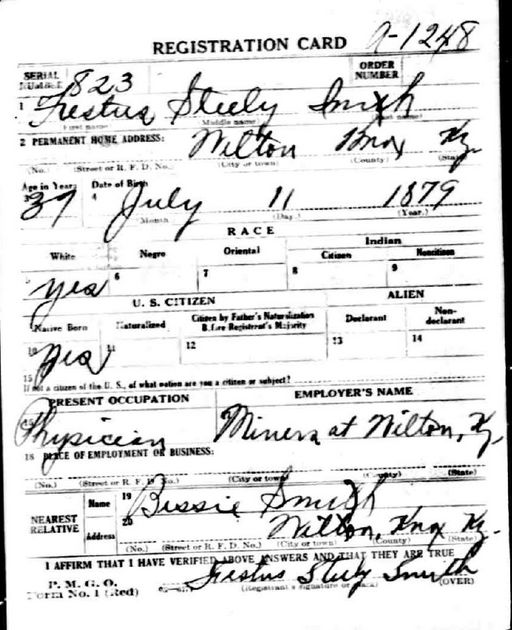 REGISTRATION CARD A-1248
SERIAL NUMBER 823 ORDER NUMBER
1 Festus Steely Smith
First name Middle name Last name
2 PERMANENT HOME ADDRESS: Wilton Knox Ky.
(No.) (Street or R. F. D. No.) (City or town) (County) (State)
Age in Years Date of Birth
3 39 4 July 11 1879
(Month) (Day.) (Year.)
RACE
White Negro Oriental Indian
Citizen Noncitizen
5 yes 6 7 8 9
U. S. CITIZEN ALIEN
Native Born Naturalized Citizen by Father's Naturalization Before Registrant's Majority Declarant Non-declarant
10 yes 11 12 13 14
15
If not a citizen of the U. S., of what nation are you a citizen or subject?
PRESENT OCCUPATION EMPLOYER'S NAME
Physician Miners at Wilton, Ky.
18 PLACE OF EMPLOYMENT OR BUSINESS:
(No.) (Street or R. F. D. No.) (City or town) (County) (State)
NEAREST RELATIVE Name 19 Bissie Smith
Address 20 Wilton, Knox Ky.
(No.) (Street or R. F. D. No.) (City or town) (County) (State)
I AFFIRM THAT I HAVE VERIFIED ABOVE ANSWERS AND THAT THEY ARE TRUE
P. M. G. O.
Form No. 1 (Red) Festus Steely Smith
(Registrant's signature or mark) (OVER)